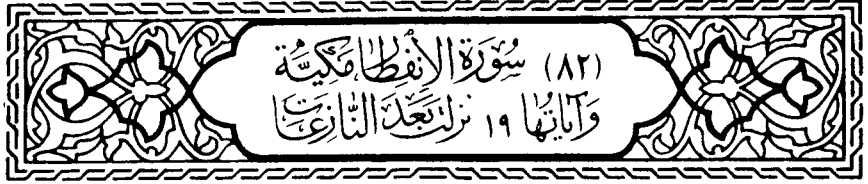 (٨٢) سُورَةُ الإِنفِطَارِ مَكِيَّة
وَآيَاتُهَا ١٩ نَزَلَتْ بَعْدَ النَّازِعَاتِ